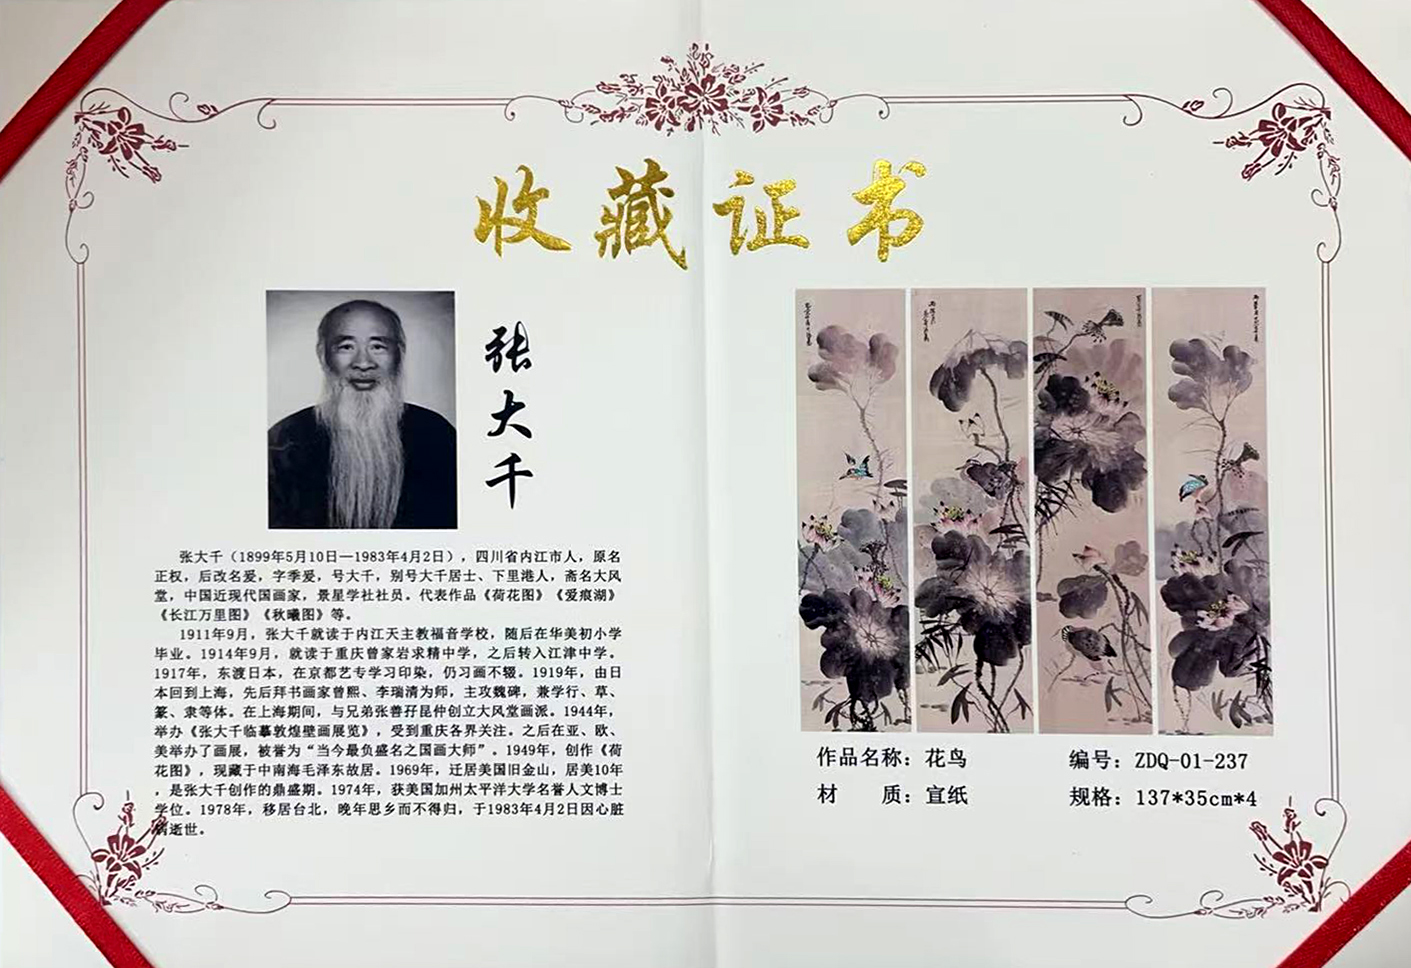 收藏证书
张大千
张大千（1899年5月10日—1983年4月2日），四川省内江市人，原名
正权，后改名爰，字季爰，号大千，别号大千居士、下里港人，斋名大风
堂，中国近现代国画家，景星学社社员。代表作品《荷花图》《爱痕湖》
《长江万里图》《秋曦图》等。
1911年9月，张大千就读于内江天主教福音学校，随后在华美初小学
毕业。1914年9月，就读于重庆曾家岩求精中学，之后转入江津中学。
1917年，东渡日本，在京都艺专学习印染，仍习画不辍。1919年，由日
本回到上海，先后拜书画家曾熙、李瑞清为师，主攻魏碑，兼学行、草、
篆、隶等体。在上海期间，与兄弟张善孖昆仲创立大风堂画派。1944年，
举办《张大千临摹敦煌壁画展览》，受到重庆各界关注。之后在亚、欧、
美举办了画展，被誉为“当今最负盛名之国画大师”。1949年，创作《荷
花图》，现藏于中南海毛泽东故居。1969年，迁居美国旧金山，居美10年
，是张大千创作的鼎盛期。1974年，获美国加州太平洋大学名誉人文博士
学位。1978年，移居台北，晚年思乡而不得归，于1983年4月2日因心脏
病逝世。
作品名称：花鸟
编号：ZDQ-01-237
材　　质：宣纸
规格：137*35cm*4